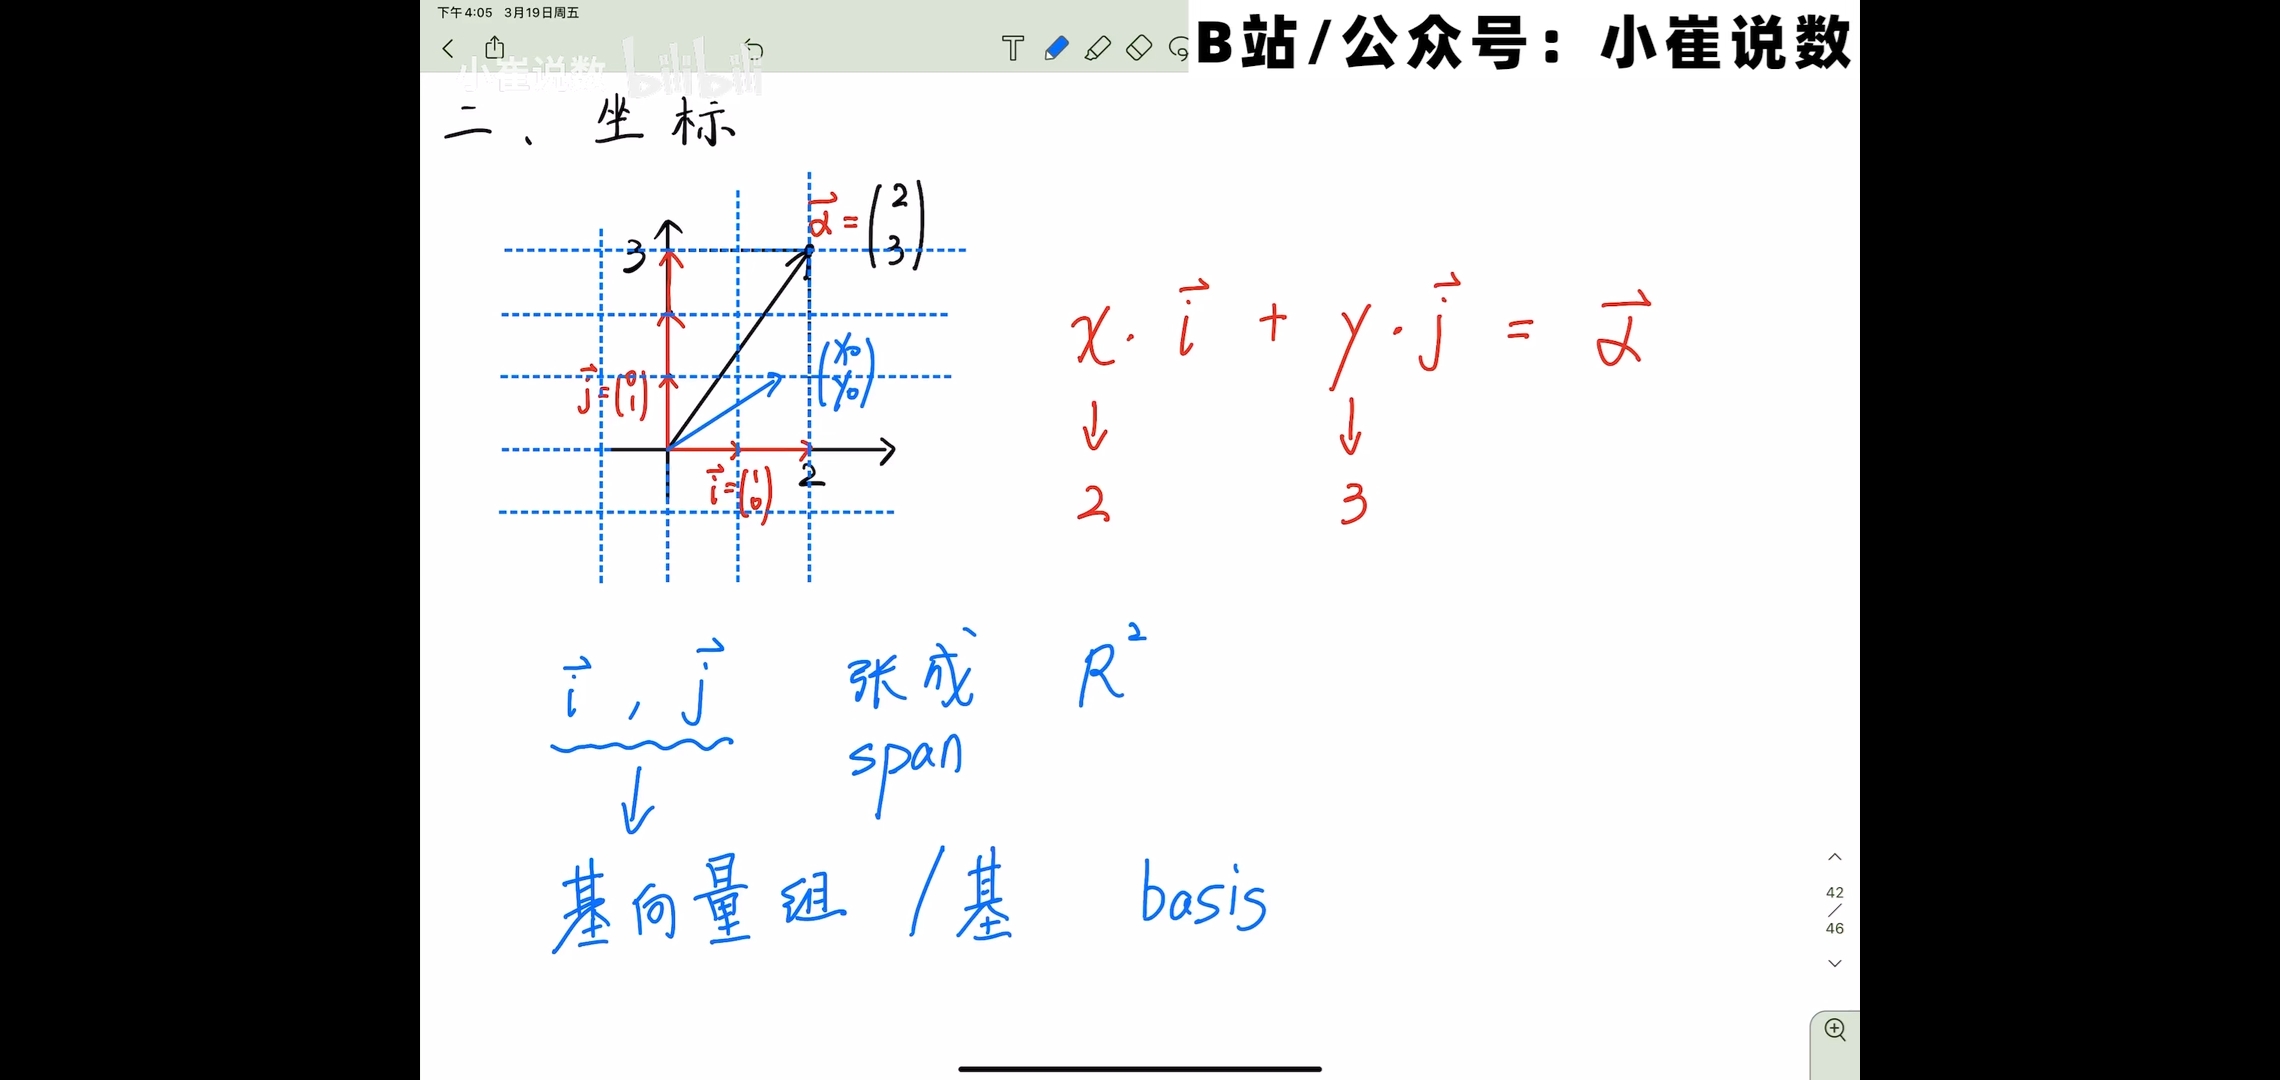 下午4:05 3月19日周五
B站/公众号：小崔说数
小崔说数 bilibili
二、坐标
α⃗ = (2 3)
3
(x₀ y₀)
j⃗ = (0 1)
i⃗ = (1 0)
2
x · i⃗ + y · j⃗ = α⃗
↓ ↓
2 3
i⃗ , j⃗ 张成 R²
span
↓
基向量组 / 基 basis
42
/
46